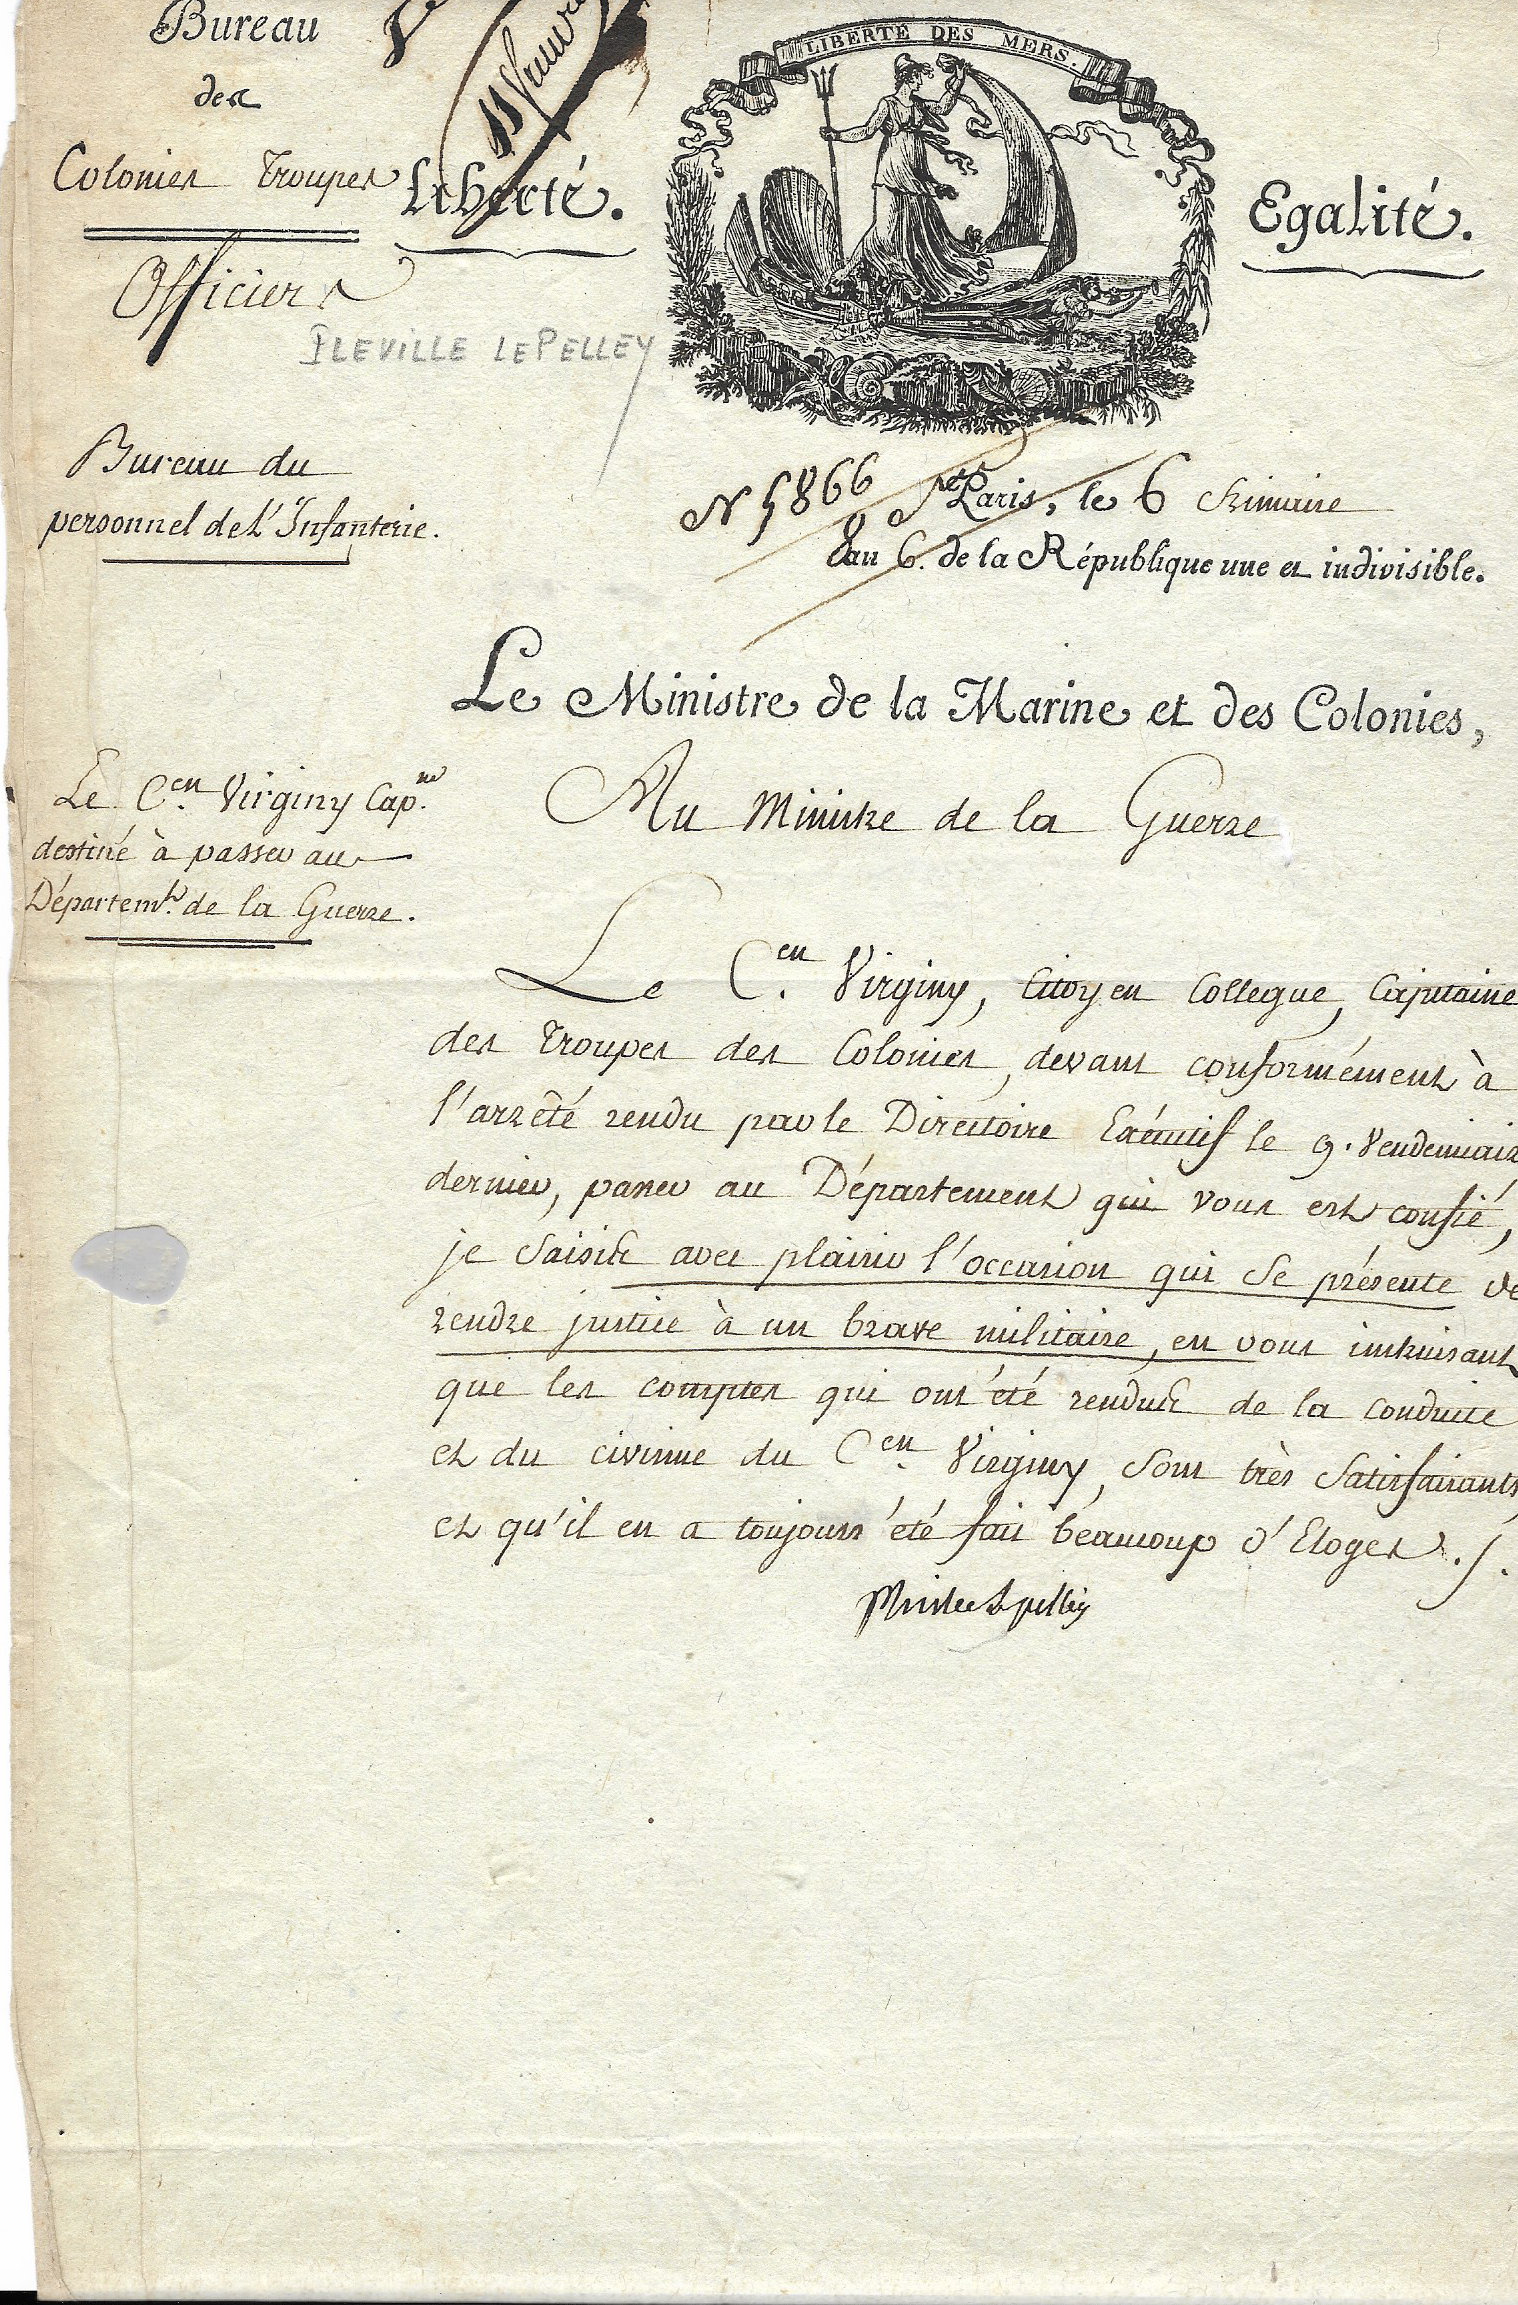 Bureau
des
Colonies Troupes
Officiers
PLEVILLE LE PELLEY
Bureau du
personnel de l'Infanterie.
LIBERTÉ DES MERS.
Liberté.
Egalité.
N 5866
Paris, le 6 frimaire
an 6. de la République une et indivisible.
Le Ministre de la Marine et des Colonies,
Au Ministre de la Guerre
Le C.en Virginy Cap.ne
destiné à passer au
Départem.t de la Guerre.
Le C.en Virginy, Citoyen Collegue, Capitaine
des Troupes des Colonies, devant conformément à
l'arrêté rendu par le Directoire Exécutif le 9. Vendemiaire
dernier, passer au Département qui vous est confié,
je saisis avec plaisir l'occasion qui se présente de
rendre justice à un brave militaire, en vous instruisant
que les comptes qui ont été rendus de la conduite
et du civisme du C.en Virginy, sont très satisfaisants,
et qu'il en a toujours été fait beaucoup d'Eloges./.
Pleville Lepelley